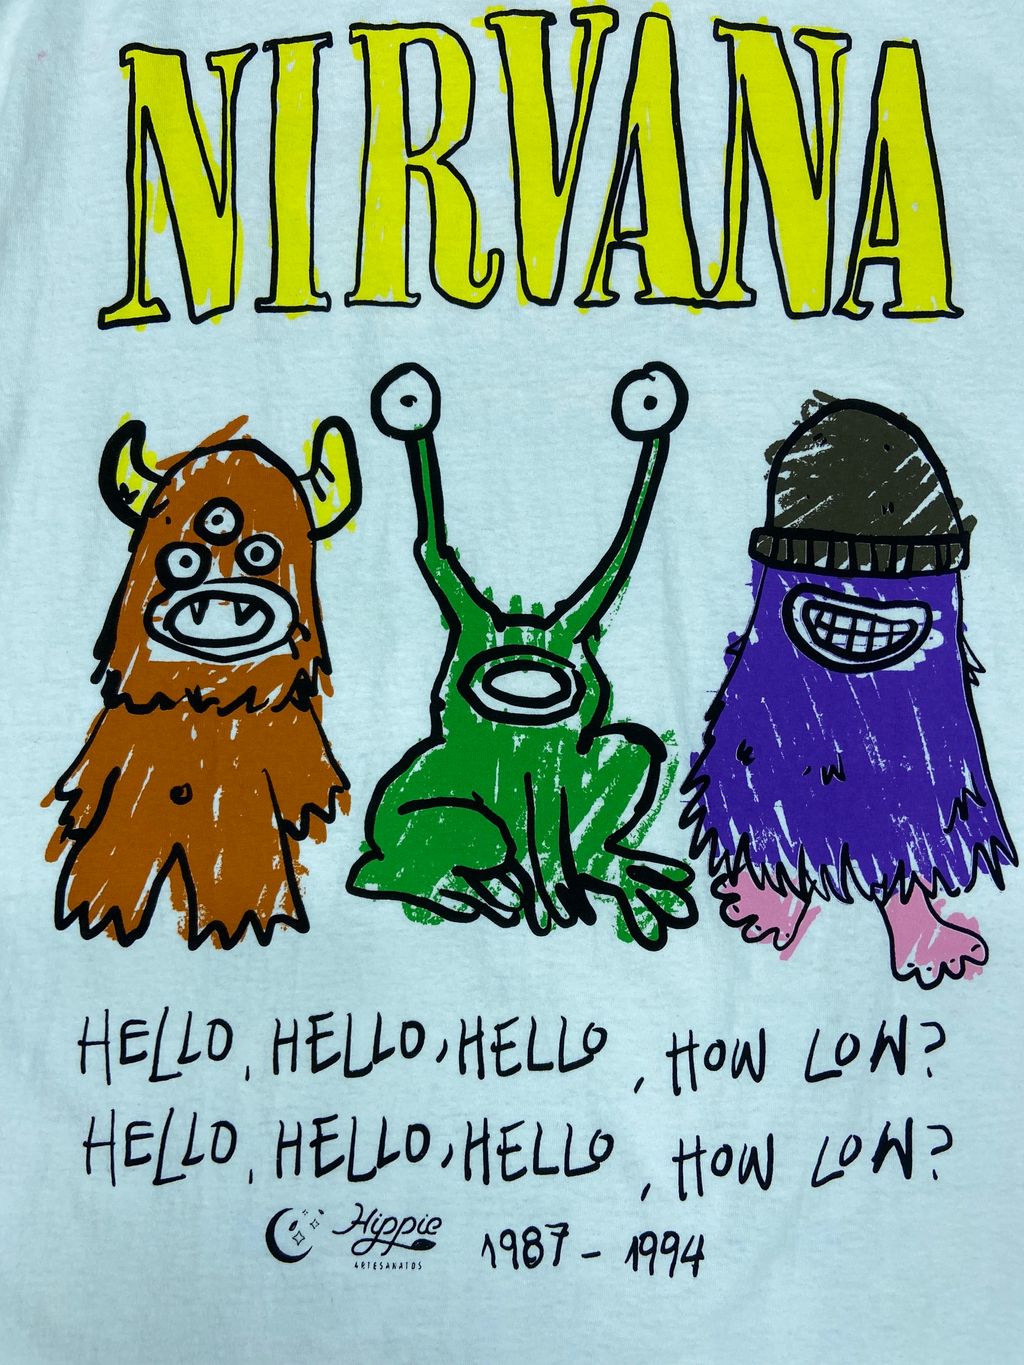 NIRVANA
HELLO, HELLO, HELLO, HOW LOW?
HELLO, HELLO, HELLO, HOW LOW?
Hippie
ARTESANATOS
1987 - 1994